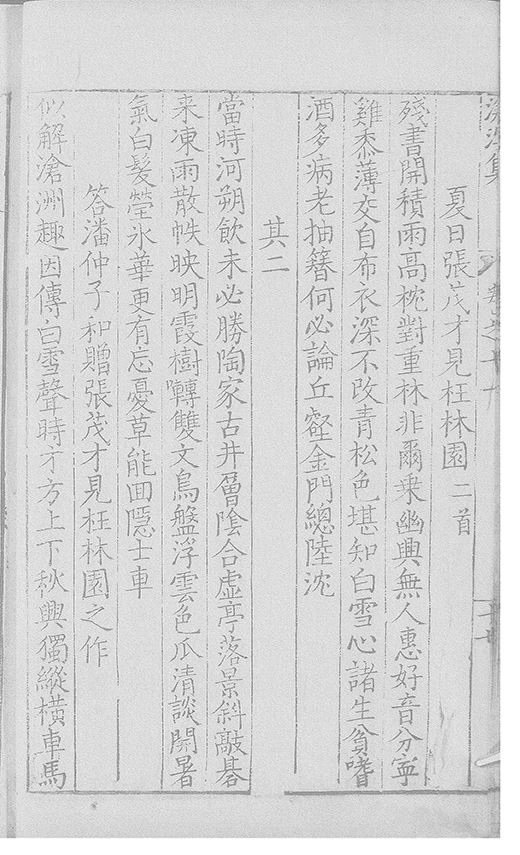 滄溟集 卷之十
夏日張茂才見枉林園二首
殘書開積雨高枕對重林非爾乗幽興無人惠好音分寧
雞黍薄交自布衣深不改青松色堪知白雪心諸生貧嗜
酒多病老抽簪何必論丘壑金門總陸沈
其二
當時河朔飲未必勝陶家古井曾陰合虚亭落景斜敲碁
来凍雨散帙映明霞樹囀雙文鳥盤浮雲色瓜清談開暑
氣白髮瑩氷華更有忘憂草能囬隱士車
答潘仲子和贈張茂才見枉林園之作
似解滄洲趣因傳白雪聲時才方上下秋興獨縱橫車馬